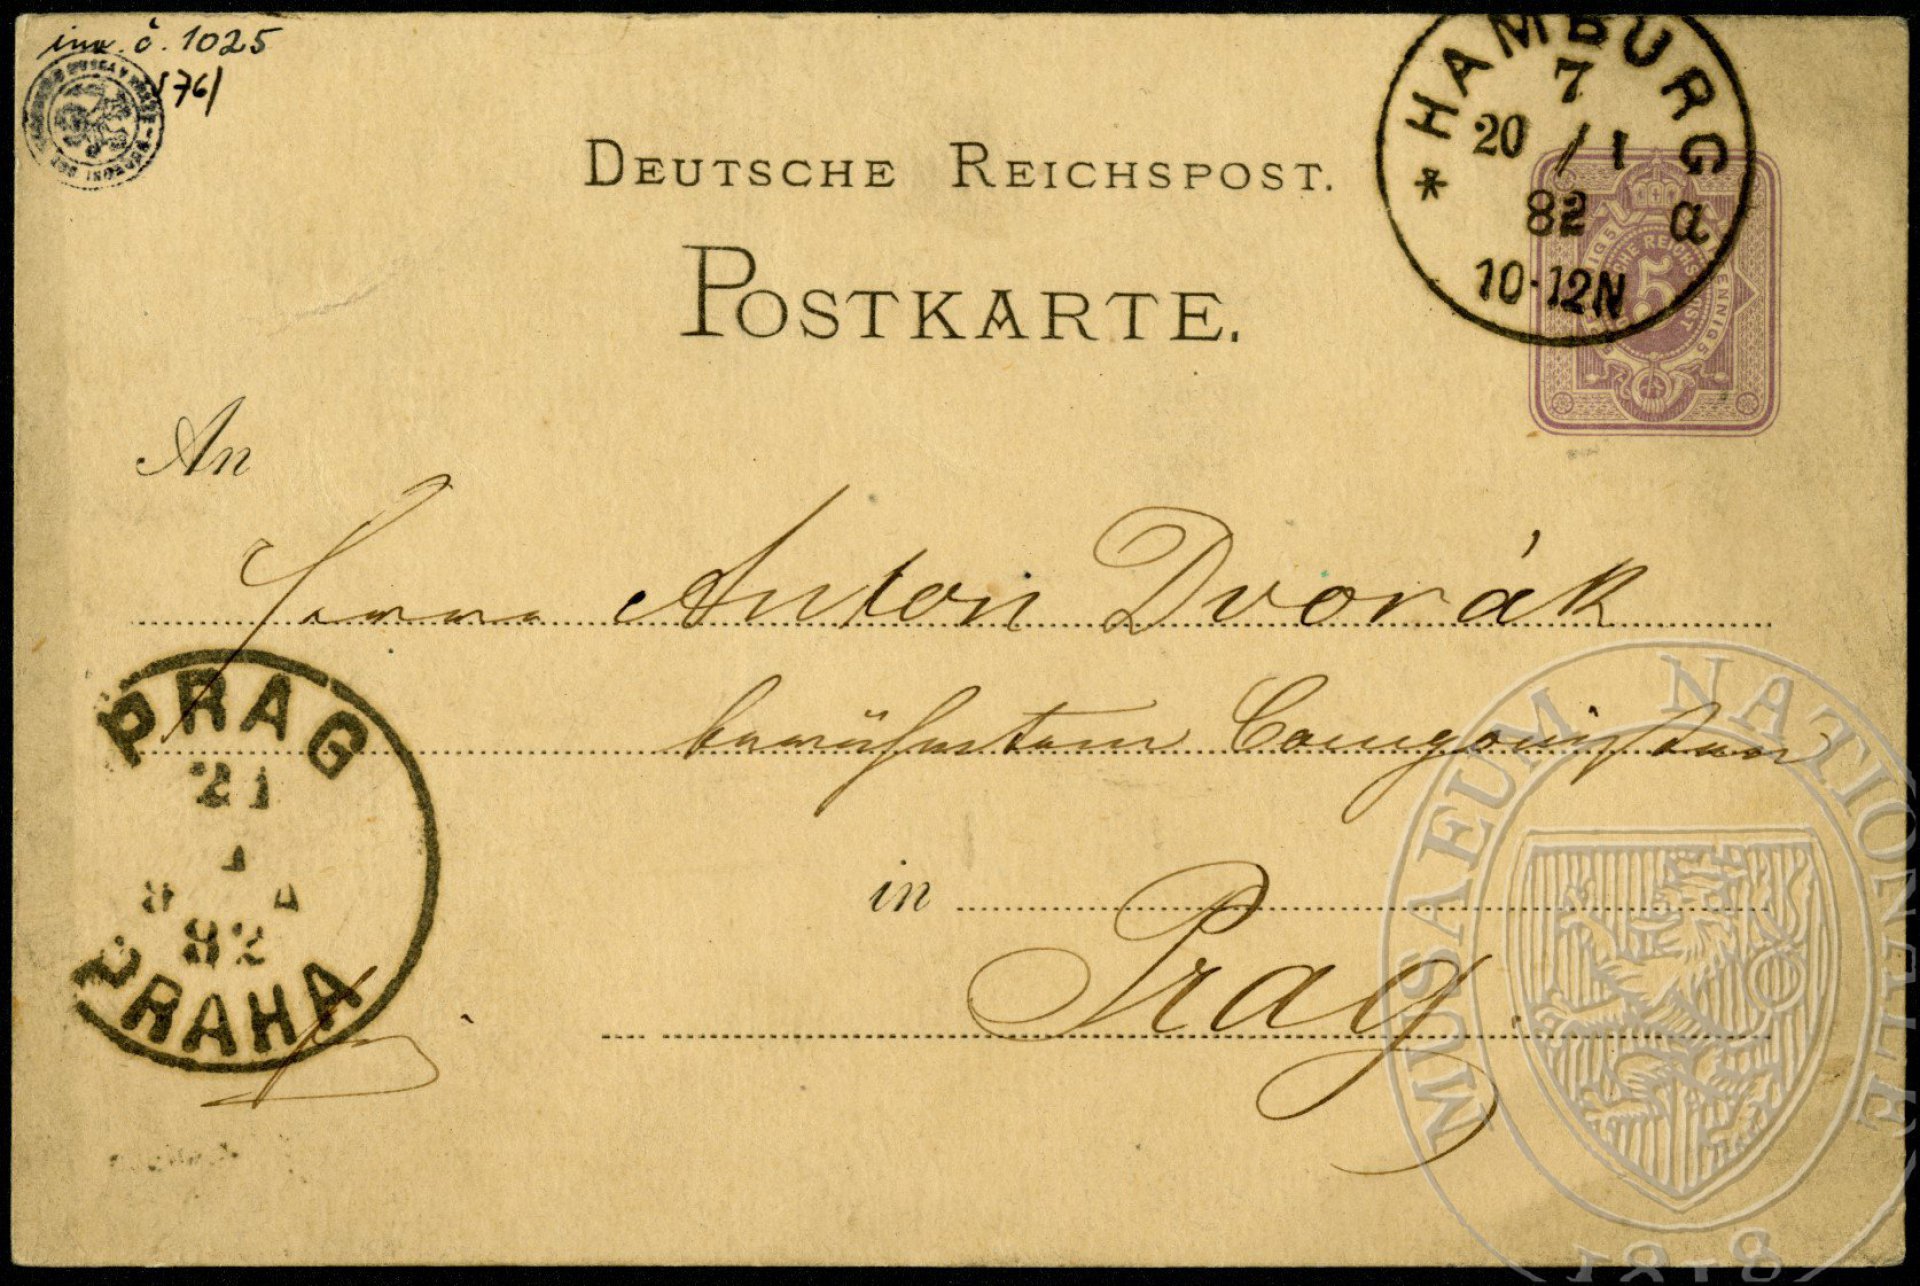 inv. č. 1025
1761
HAMBURG
7
20 / 1
82 a
10-12N
DEUTSCHE REICHSPOST.
POSTKARTE.
An
Herrn Anton Dvorák
berühmten Componisten
in
Prag.
PRAG
21
1
82
PRAHA
MUSAEUM NATIONALE
1818